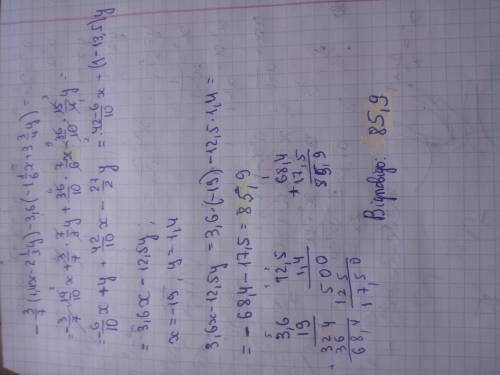 -3/7(1,4x-2 1/3y)-3,6(-1 1/6x+3 3/4y)=
=-3/7·14/10x+3/7·7/3y+36/10·7/6x-36/10·15/4y=
=-6/10x+y+42/10x-27/2y=42-6/10x+(1-13,5)y
=3,6x-12,5y;
x=-19, y=1,4
3,6x-12,5y=3,6·(-19)-12,5·1,4=
=-68,4-17,5=85,9
3,6 12,5 68,4
19 1,4 +17,5
+324 500 85,9
36 125
68,4 17,50
Відповідь: 85,9